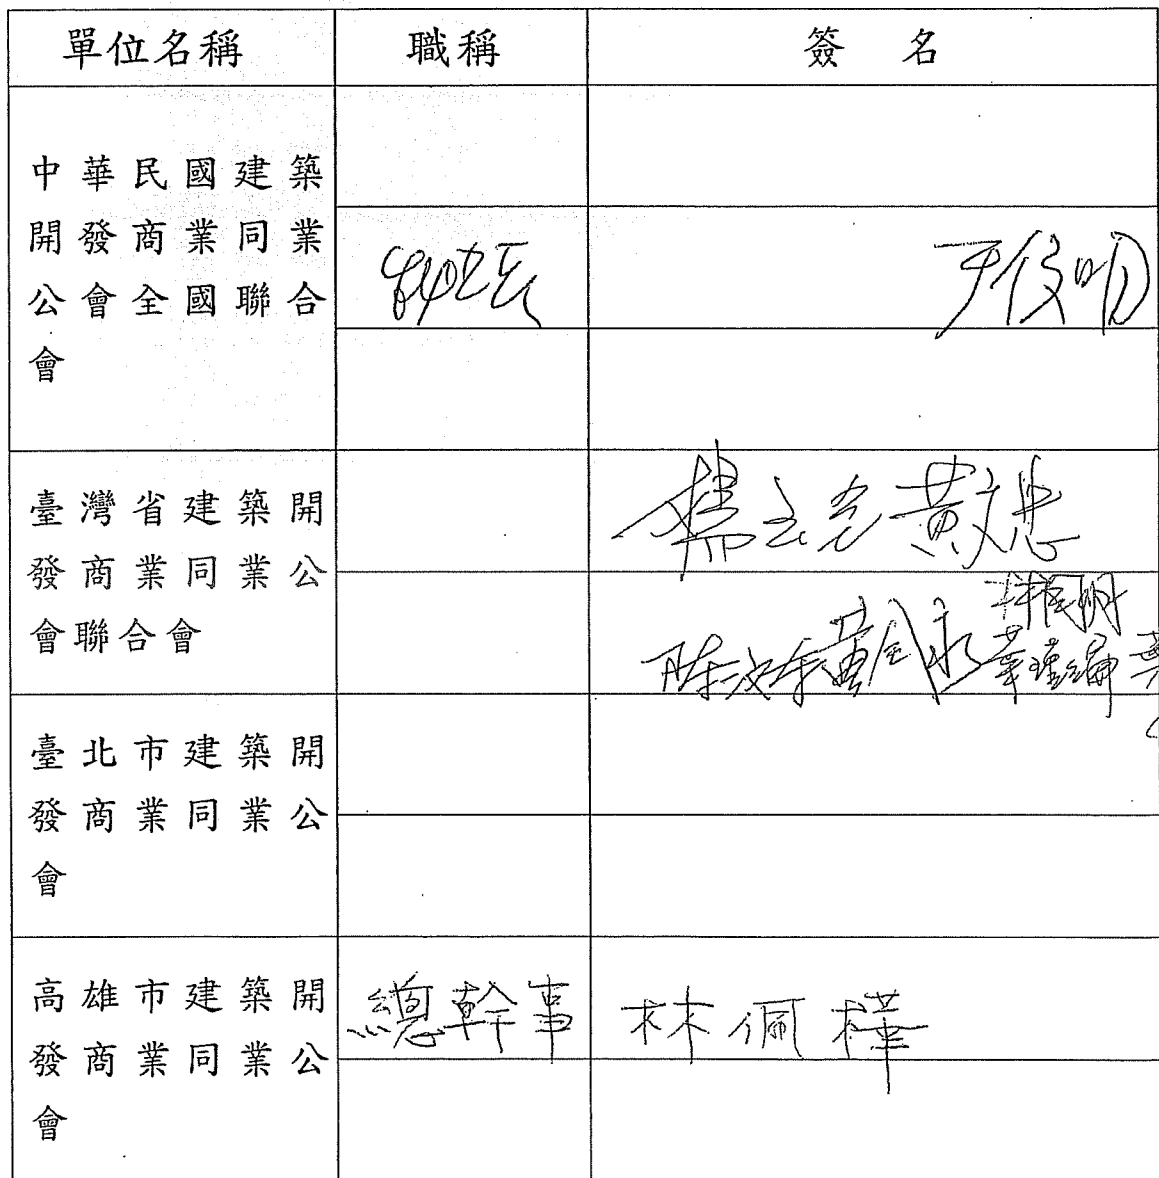 單位名稱 職稱 簽名
中華民國建築
開發商業同業
公會全國聯合
會
于俊明
臺灣省建築開
發商業同業公
會聯合會
黃文忠
臺北市建築開
發商業同業公
會
高雄市建築開
發商業同業公
會
總幹事 林佩樺